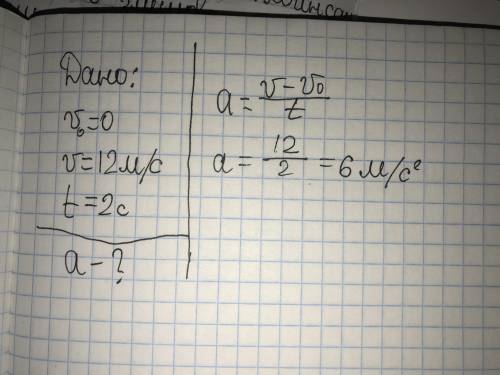 Дано:
v₀=0
v=12м/с
t=2с
a-?
a = (v-v₀)/t
a = 12/2 = 6 м/с²